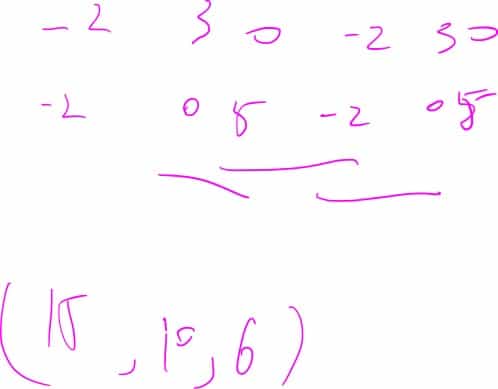 -2 3 0 -2 3 0
-2 0 5 -2 0 5
(15, 10, 6)